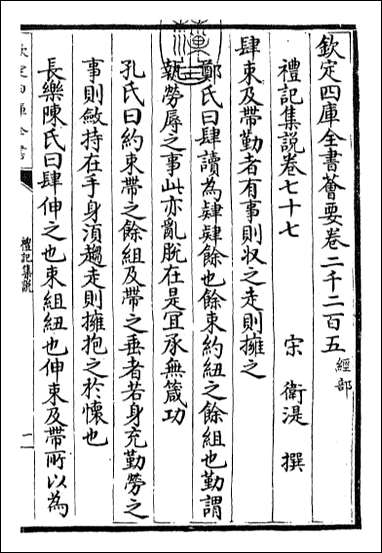 欽定四庫全書薈要卷二千二百五 經部
禮記集説卷七十七
宋 衛湜 撰
肆束及帶勤者有事則収之走則擁之
鄭氏曰肆讀為肄肄餘也餘束約紐之餘組也勤謂
執勞辱之事此亦亂脫在是冝承無箴功
孔氏曰約束帶之餘組及帶之垂者若身充勤勞之
事則斂持在手身須趨走則擁抱之於懷也
長樂陳氏曰肆伸之也束組紐也伸束及帶所以為
禮記集説